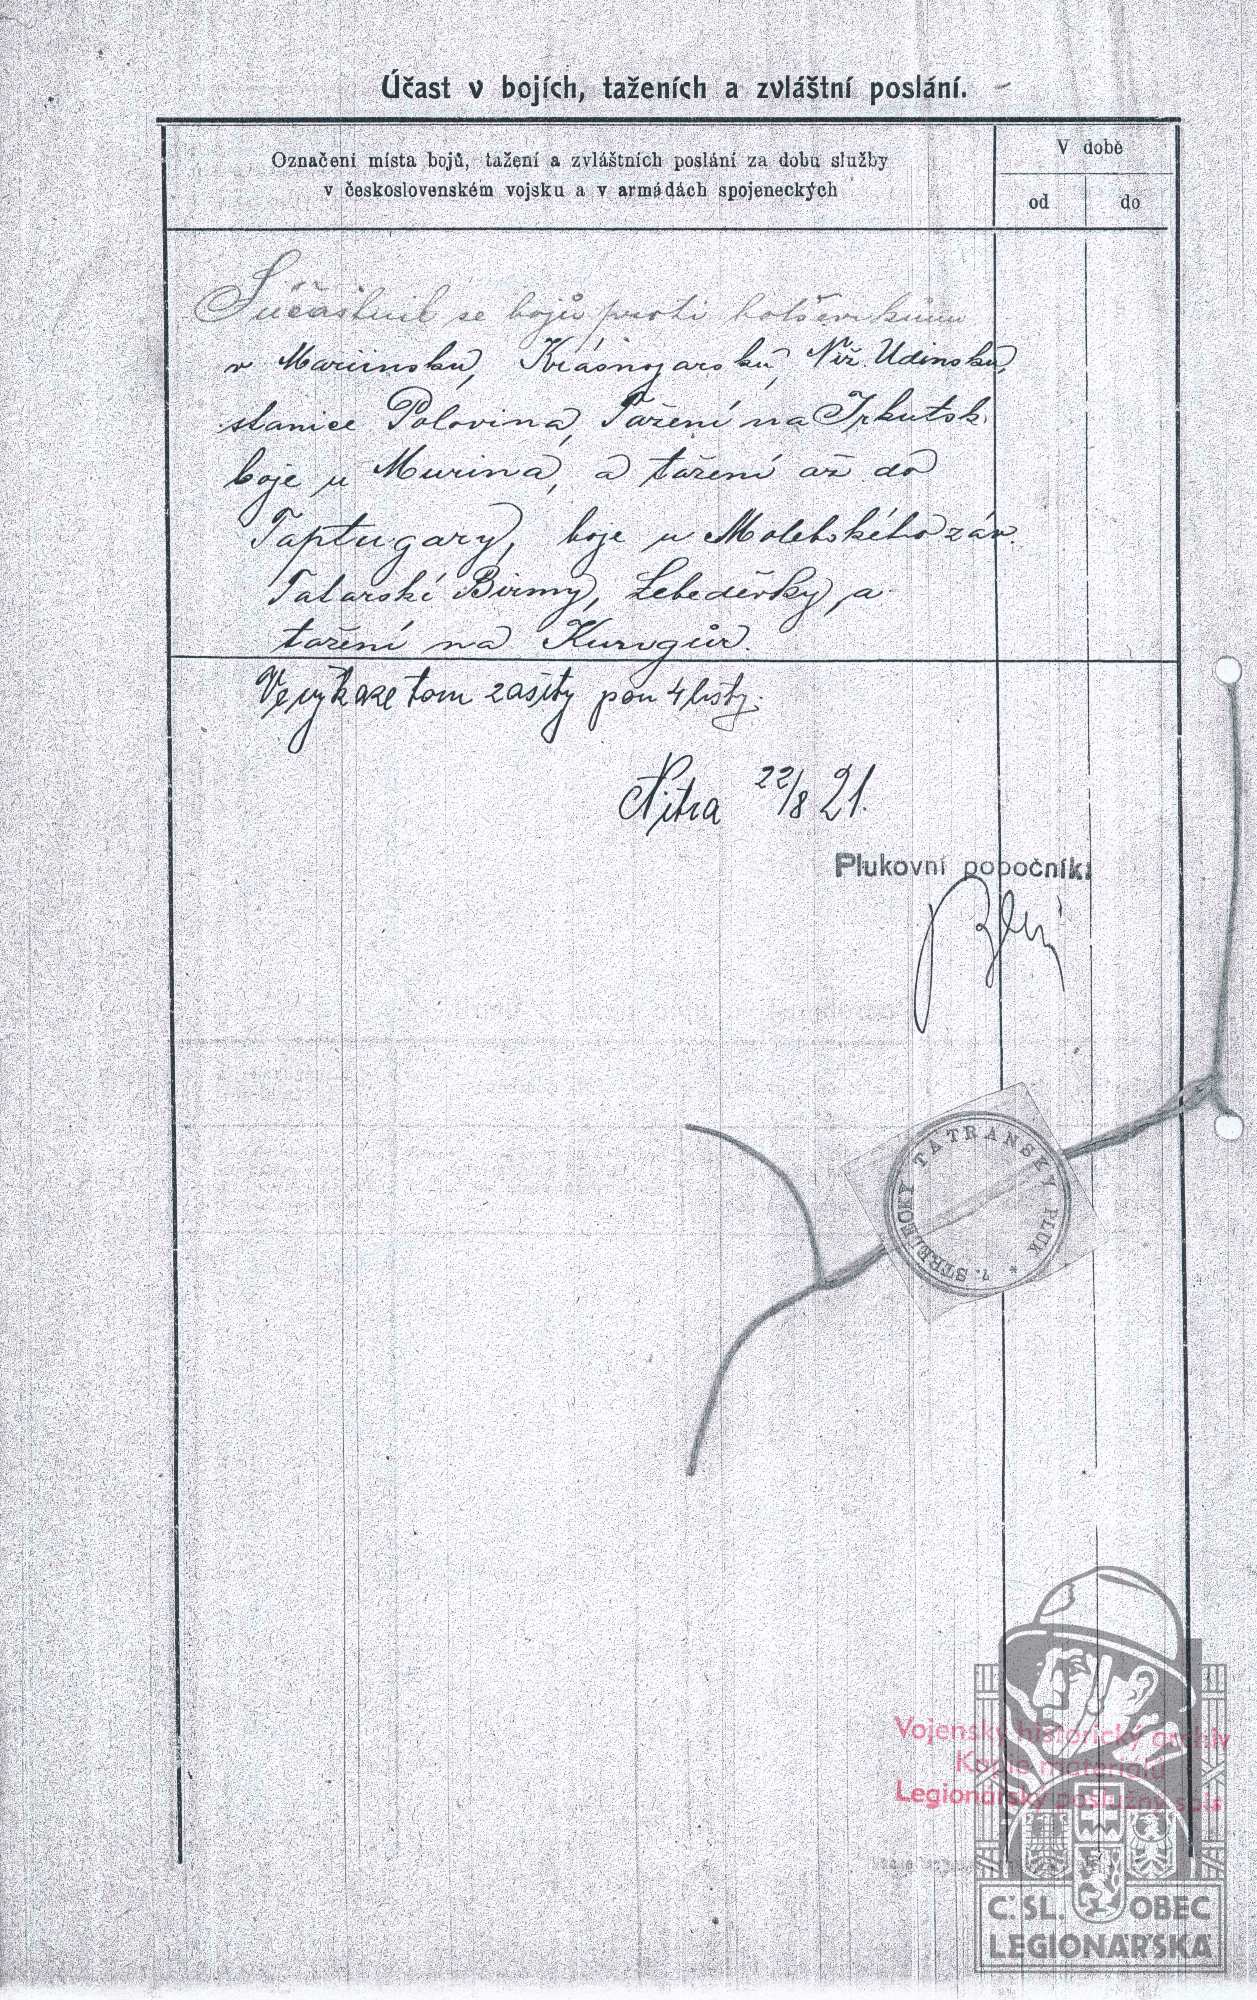 Účast v bojích, taženích a zvláštní poslání.
Označení místa bojů, tažení a zvláštních poslání za dobu služby
v československém vojsku a v armádách spojeneckých
V době
od
do
Súčastnil se bojů proti bolševikům
v Mariinsku, Krásnojarsku, Niž. Udinsku,
stanice Polovina, Tažení na Irkutsk
boje u Murina, a tažení až do
Taptugary, boje u Molebského záv.
Tatarski Birmy, Lebeděvky, a
tažení na Kungur.
Ve výkaze tom zašity jsou 4 listy.
Nitra 22/8 21.
Plukovní pobočník:
7. STŘELECKÝ TATRANSKÝ PLUK *
Vojenský historický archiv
Kopie materiálu
Legionářský poslužný spis
Č. SL. OBEC
LEGIONÁŘSKÁ